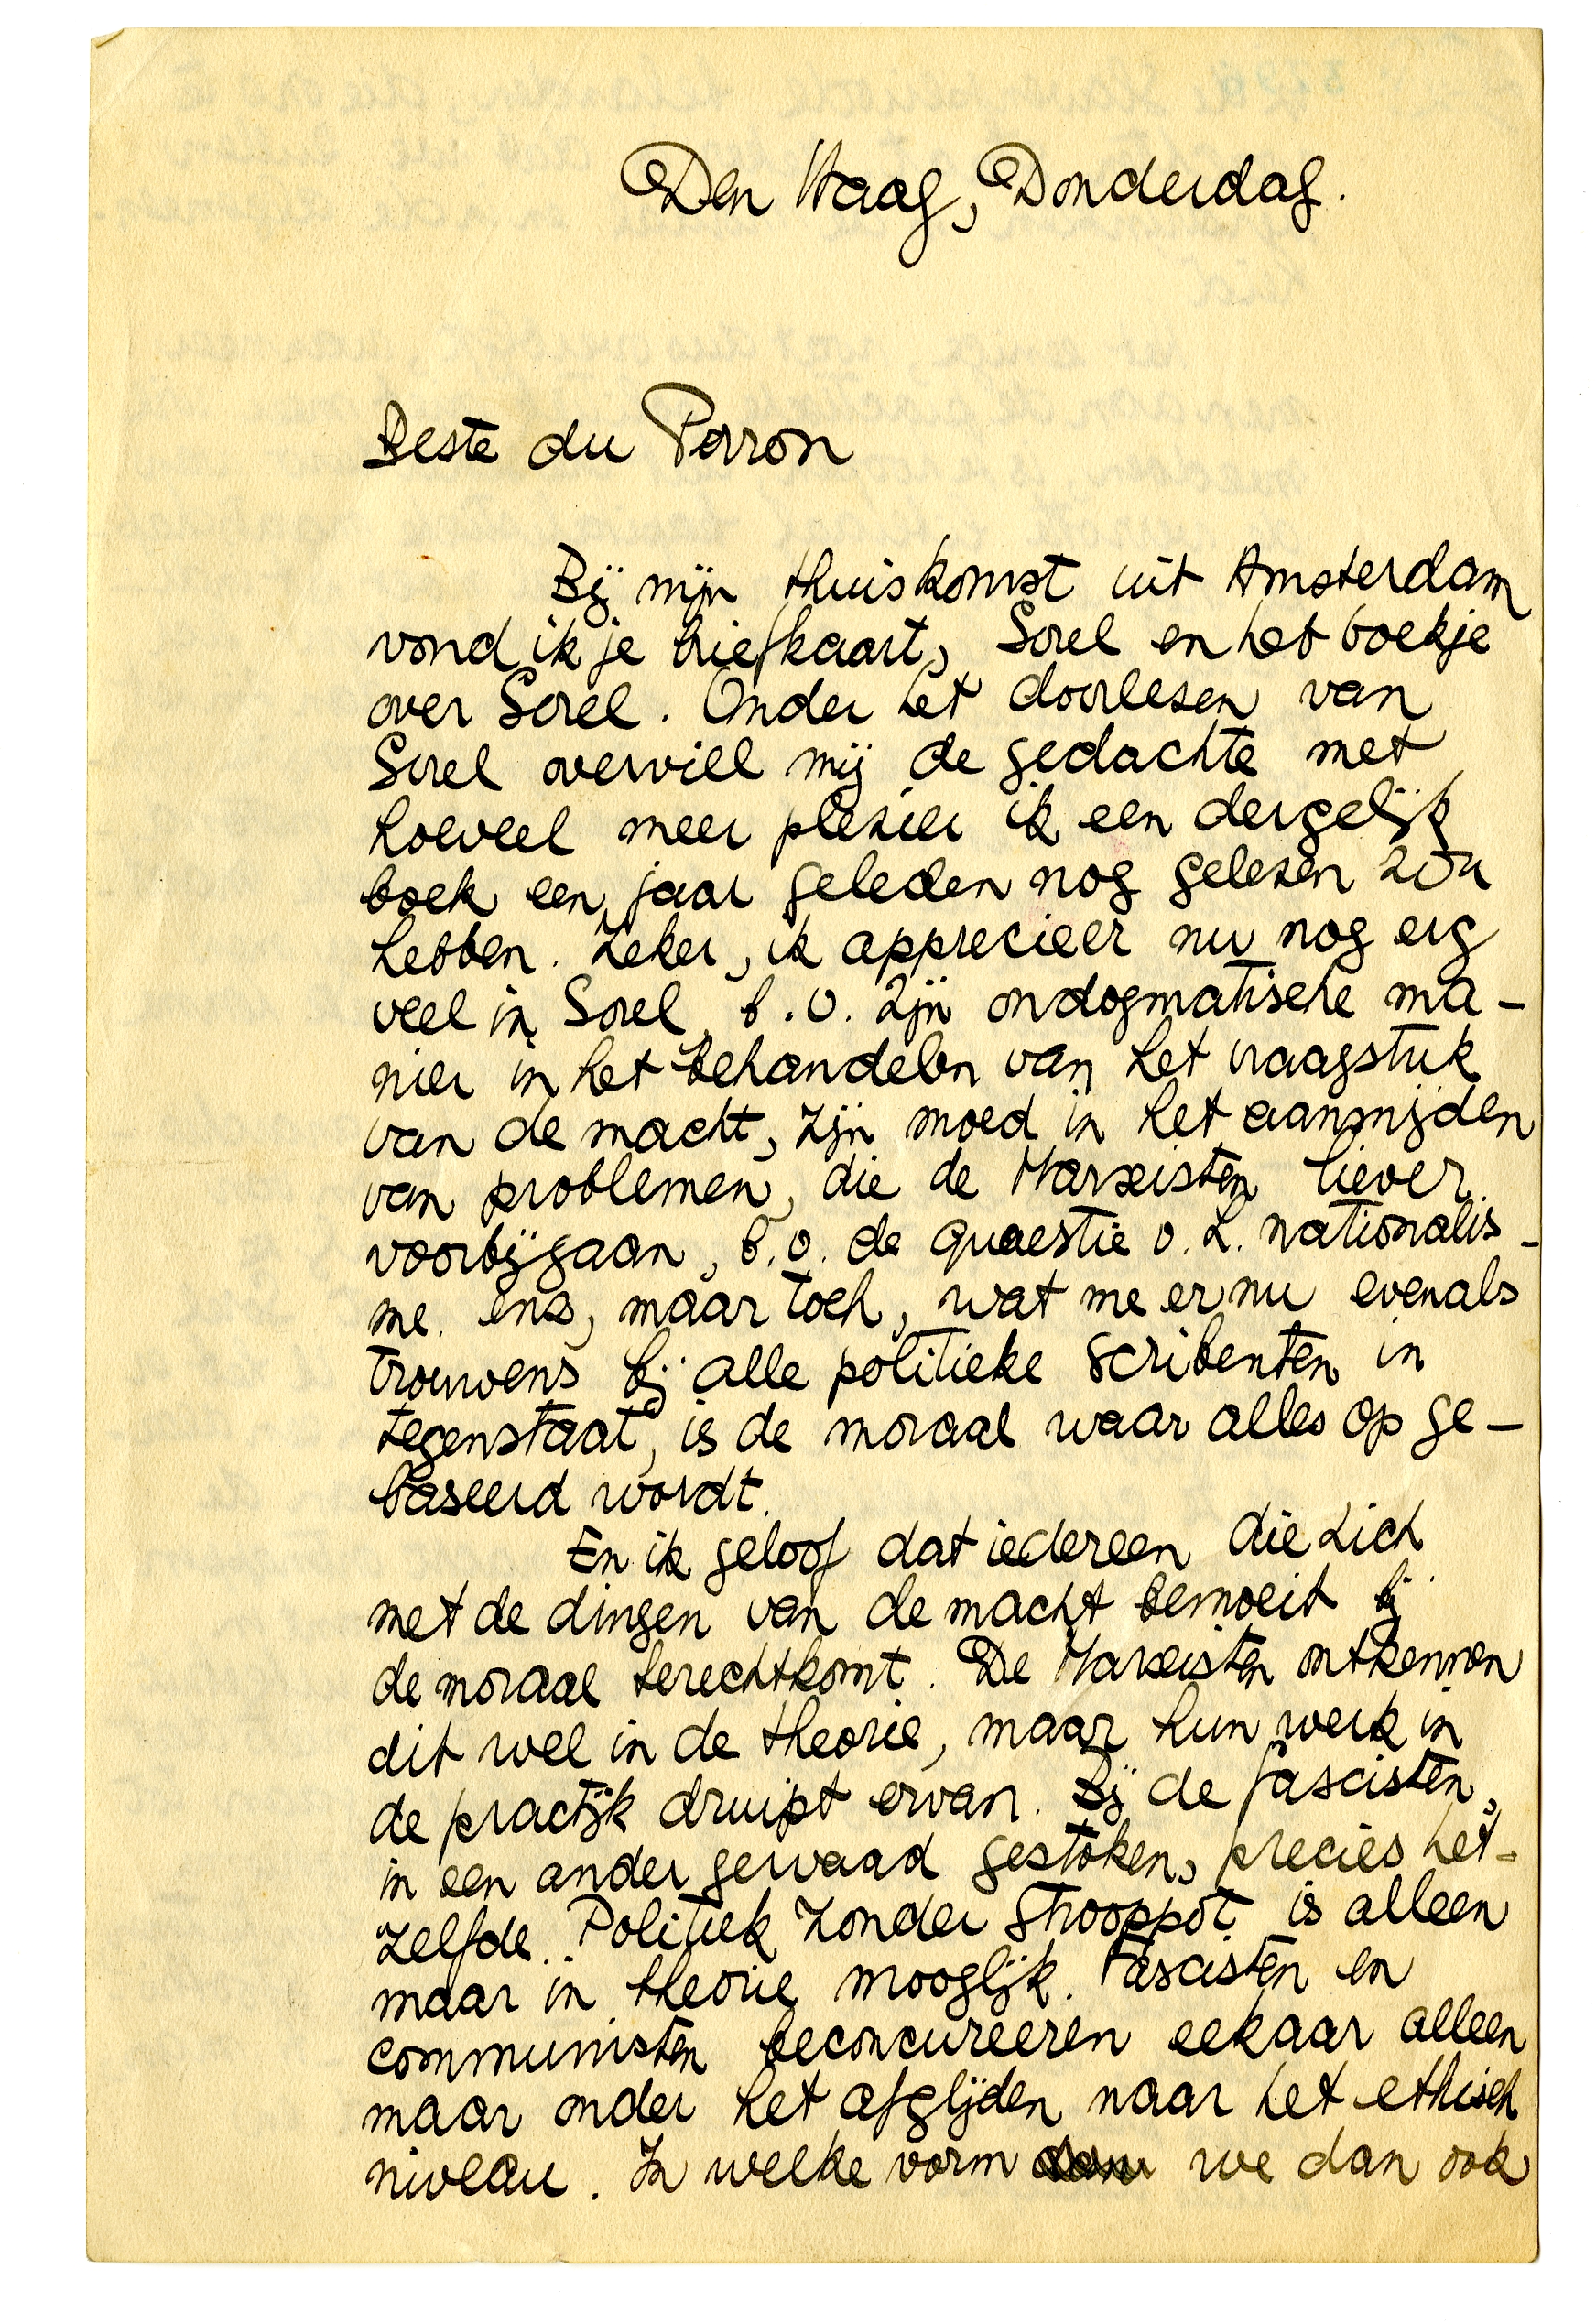 Den Haag, Donderdag.
Beste du Perron
Bij mijn thuiskomst uit Amsterdam
vond ik je briefkaart, Sorel en het boekje
over Sorel. Onder het doorlezen van
Sorel overviel mij de gedachte met
hoeveel meer plezier ik een dergelijk
boek een jaar geleden nog gelezen zou
hebben. Zeker, ik apprecieer nu nog erg
veel in Sorel, b.v. zijn ondogmatische ma-
nier in het behandelen van het vraagstuk
van de macht, zijn moed in het aansnijden
van problemen, die de Marxisten liever
voorbijgaan, b.v. de quaestie v.h. nationalis-
me. enz, maar toch, wat me er nu evenals
trouwens bij alle politieke scribenten in
tegenstaat, is de moraal waar alles op ge-
baseerd wordt.
En ik geloof dat iedereen die zich
met de dingen van de macht bemoeit bij
de moraal terechtkomt. De Marxisten ontkennen
dit wel in de theorie, maar hun werk in
de practijk druipt ervan. Bij de fascisten,
in een ander gewaad gestoken, precies het-
zelfde. Politiek zonder strooppot is alleen
maar in theorie mooglijk. Fascisten en
communisten beconcureeren eekaar alleen
maar onder het afglijden naar het ethisch
niveau. In welke vorm we dan ook